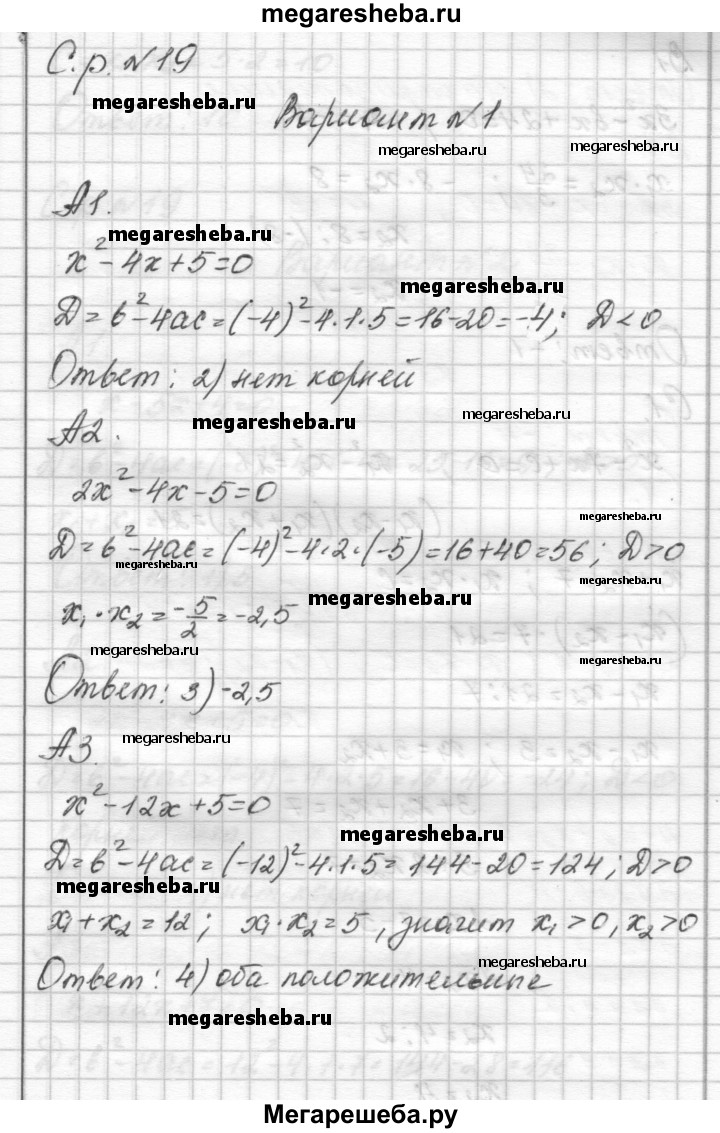 megaresheba.ru
С.р. №19
megaresheba.ru
Вариант №1
megaresheba.ru
megaresheba.ru
А1.
megaresheba.ru
x² - 4x + 5 = 0
megaresheba.ru
D = b² - 4ac = (-4)² - 4·1·5 = 16 - 20 = -4; D < 0
Ответ: 2) нет корней
megaresheba.ru
megaresheba.ru
А2.
2x² - 4x - 5 = 0
megaresheba.ru
D = b² - 4ac = (-4)² - 4·2·(-5) = 16 + 40 = 56; D > 0
megaresheba.ru
megaresheba.ru
x₁·x₂ = -5/2 = -2,5
megaresheba.ru
megaresheba.ru
Ответ: 3) -2,5
А3.
megaresheba.ru
x² - 12x + 5 = 0
megaresheba.ru
D = b² - 4ac = (-12)² - 4·1·5 = 144 - 20 = 124; D > 0
megaresheba.ru
x₁ + x₂ = 12; x₁·x₂ = 5, значит x₁ > 0, x₂ > 0
megaresheba.ru
Ответ: 4) оба положительные
megaresheba.ru
Мегарешеба.ру